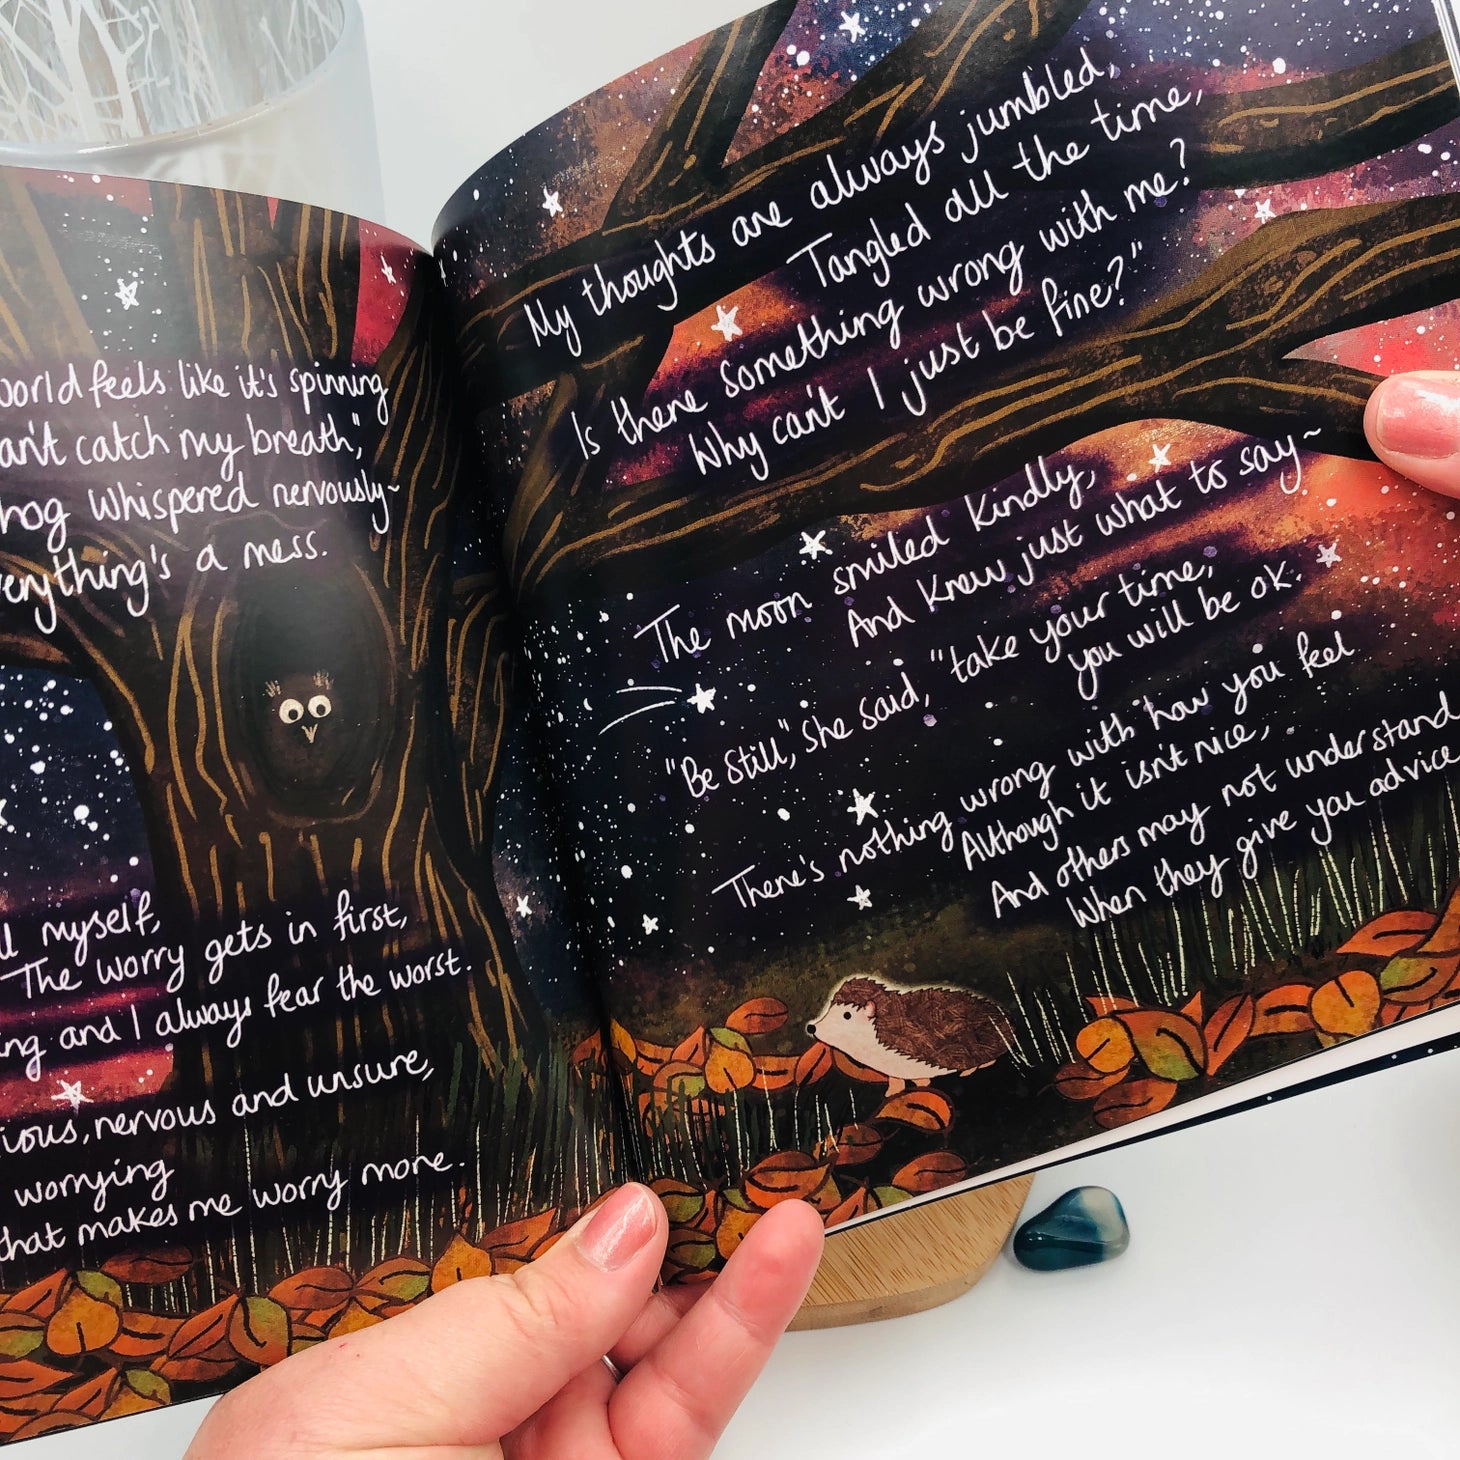 world feels like it's spinning
can't catch my breath",
hog whispered nervously~
everything's a mess.
myself,
The worry gets in first,
and I always fear the worst.
nervous and unsure,
worrying
that makes me worry more.
My thoughts are always jumbled,
Tangled all the time,
Is there something wrong with me?
Why can't I just be fine?"
The moon smiled kindly,
And knew just what to say~
"Be still," she said, "take your time,
you will be ok.
There's nothing wrong with how you feel
Although it isn't nice,
And others may not understand
When they give you advice